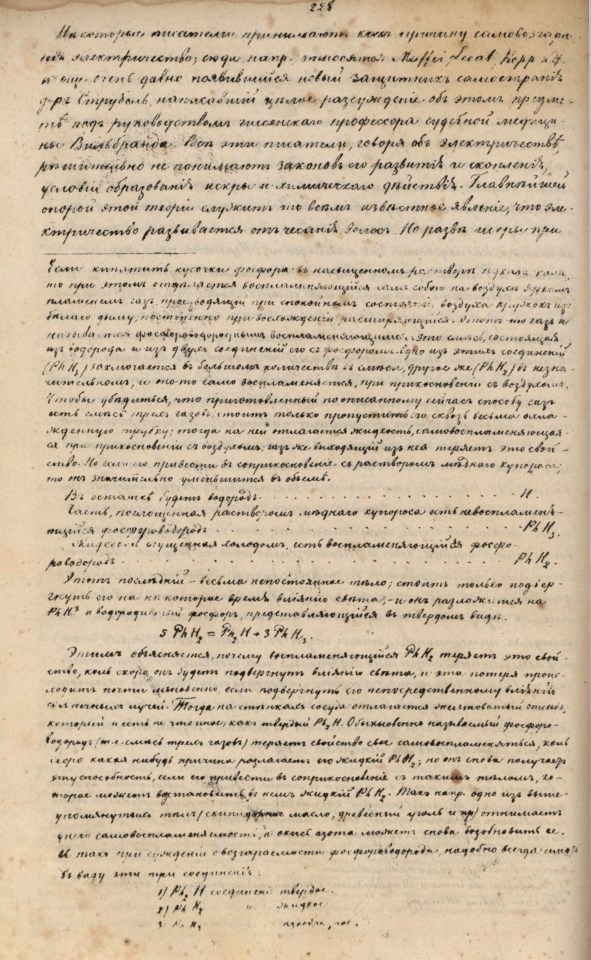 228
Нѣкоторые писатели принимаютъ какъ причину самовозгара-
нія электричество; сюда напр. относятся Maffei, Lecat, Kopp и др.
и еще очень давно появившійся новый защитникъ самостранія
д-ръ Струбель, написавшій цѣлое разсужденіе объ этомъ предме-
тѣ подъ руководствомъ гисенскаго профессора судебной медици-
ны Вильбранда. Всѣ эти писатели, говоря объ электричествѣ,
рѣшительно не понимаютъ законовъ его развитія и скопленія,
условій образованія искры и химическаго дѣйствія. Главнѣйшей
опорой этой теоріи служитъ то всѣмъ извѣстное явленіе, что эле-
ктричество развивается отъ чесанія волосъ. Но развѣ искры при
Если кипятить кусочки фосфора въ насыщенномъ растворѣ ѣдкаго кали,
то при этомъ отдѣляется воспламеняющійся самъ собою на воздухѣ яркимъ
пламенемъ газъ, производящій при спокойномъ состояніи воздуха кружокъ изъ
бѣлаго дыму, постепенно при восхожденіи расширяющійся. Этотъ то газъ и
называется фосфороводородомъ воспламеняющимся. Это смѣсь, состоящая
изъ водорода и изъ двухъ соединеній его съ фосфоромъ. Одно изъ этихъ соединеній
(PhH3) заключается въ большомъ количествѣ въ смѣси, другое же (PhH2) въ незна-
чительномъ, и оно-то само воспламеняется, при прикосновеніи съ воздухомъ.
Чтобы убѣдиться, что приготовленный по описанному сейчасъ способу газъ
есть смѣсь трехъ газовъ, стоитъ только пропустить его сквозь весьма охла-
жденную трубку; тогда на ней отлагается жидкость, самовоспламеняющая-
ся при прикосновеніи съ воздухомъ; газъ же выходящій изъ нея теряетъ это свой-
ство. Но если его привести въ соприкосновеніе съ растворомъ мѣднаго купороса,
то онъ значительно уменьшится въ объемѣ.
Въ остаткѣ будетъ водородъ . . . . . . . . . . . . H.
Часть, поглощенная растворомъ мѣднаго купороса есть невоспламеня-
ющійся фосфороводородъ . . . . . . . . . . . . PhH3.
Жидкость сгущенная холодомъ, есть воспламеняющійся фосфо-
роводородъ . . . . . . . . . . . . PhH2.
Этотъ послѣдній - весьма непостоянное тѣло; стоитъ только подвер-
гнуть его на нѣкоторое время вліянію свѣта, - и онъ разложится на
PhH3 и водородистый фосфоръ, представляющійся въ твердомъ видѣ.
5 PhH2 = Ph2H + 3PhH3.
Этимъ объясняется, почему воспламеняющійся PhH2 теряетъ это свой-
ство, коль скоро онъ будетъ подвергнутъ вліянію свѣта, и эта потеря проис-
ходитъ почти мгновенно, если подвергнуть его непосредственному вліянію
солнечныхъ лучей. Тогда на стѣнкахъ сосуда отлагается желтоватый отпеч.
который и есть не что иное, какъ твердый Ph2H. Обыкновенно называемый фосфоро-
водородъ (т.е. смѣсь трехъ газовъ) теряетъ свойство свое самовоспламеняться, коль
скоро какая нибудь причина разлагаетъ его жидкій PhH2; но онъ снова получаетъ
эту способность, если его привести въ соприкосновеніе съ такимъ тѣломъ, ко-
торое можетъ возстановить въ немъ жидкій PhH2. Такъ напр. одно изъ выше-
упомянутыхъ тѣлъ (скипидарное масло, древесный уголь и пр) отнимаетъ
у него самовоспламеняемость, а окись азота можетъ снова возобновить ее.
И такъ при сужденіи о возгараемости фосфороводорода, надобно всегда имѣть
въ виду эти три соединенія:
1) Ph2 H соединеніе твердое.
2) Ph H2 " жидкое
3 Ph H3 газообразное.